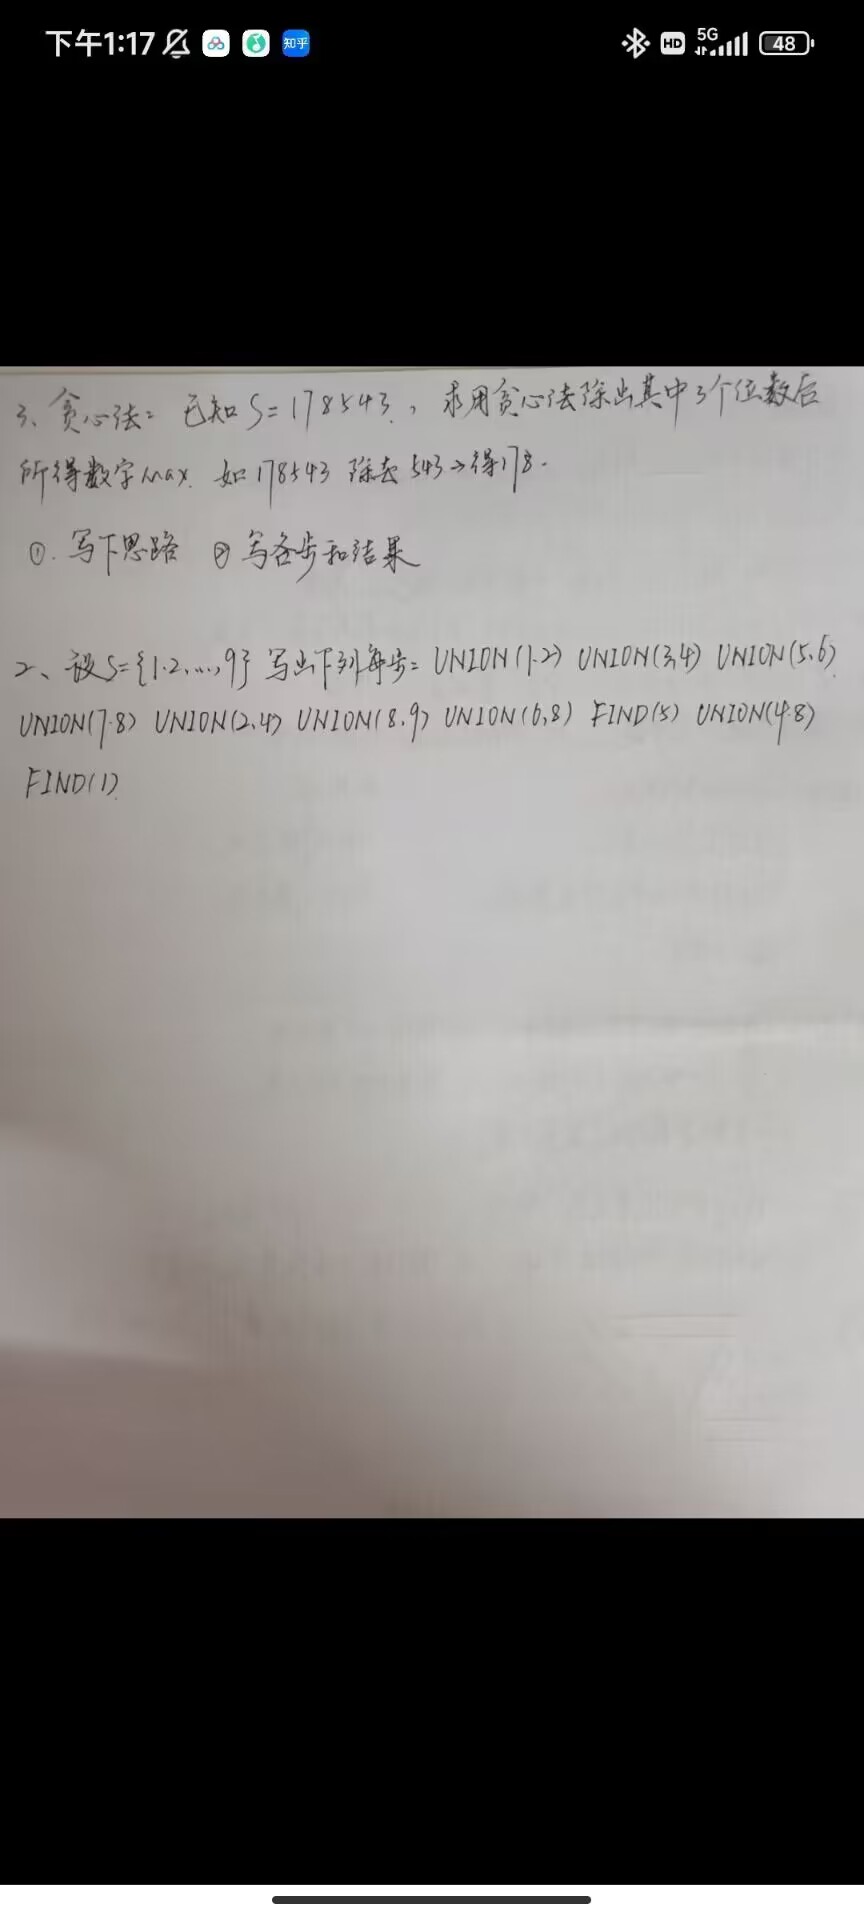 下午1:17 知乎 HD 5G 48
3、贪心法：已知S=178543，求用贪心法除出其中3个位数后
所得数字max. 如178543 除去 543→得178.
①. 写下思路 ② 写各步和结果
2、设S={1.2,...,9} 写出下列每步：UNION(1.2) UNION(3,4) UNION(5.6)
UNION(7.8) UNION(2.4) UNION(8.9) UNION(6,8) FIND(5) UNION(4.8)
FIND(1)